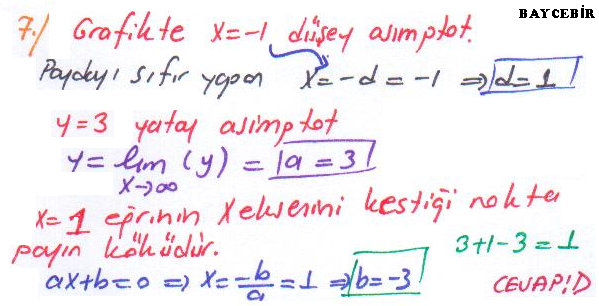 BAYCEBİR
7.) Grafikte x=-1 düşey asimptot.
Paydayı sıfır yapan x=-d=-1 ⇒ d=1
y=3 yatay asimptot
y=lim (y) = a=3
x→∞
x=1 eğrinin x eksenini kestiği nokta
payın köküdür.
3+1-3=1
ax+b=0 ⇒ x=-b/a=1 ⇒ b=-3
CEVAP:D